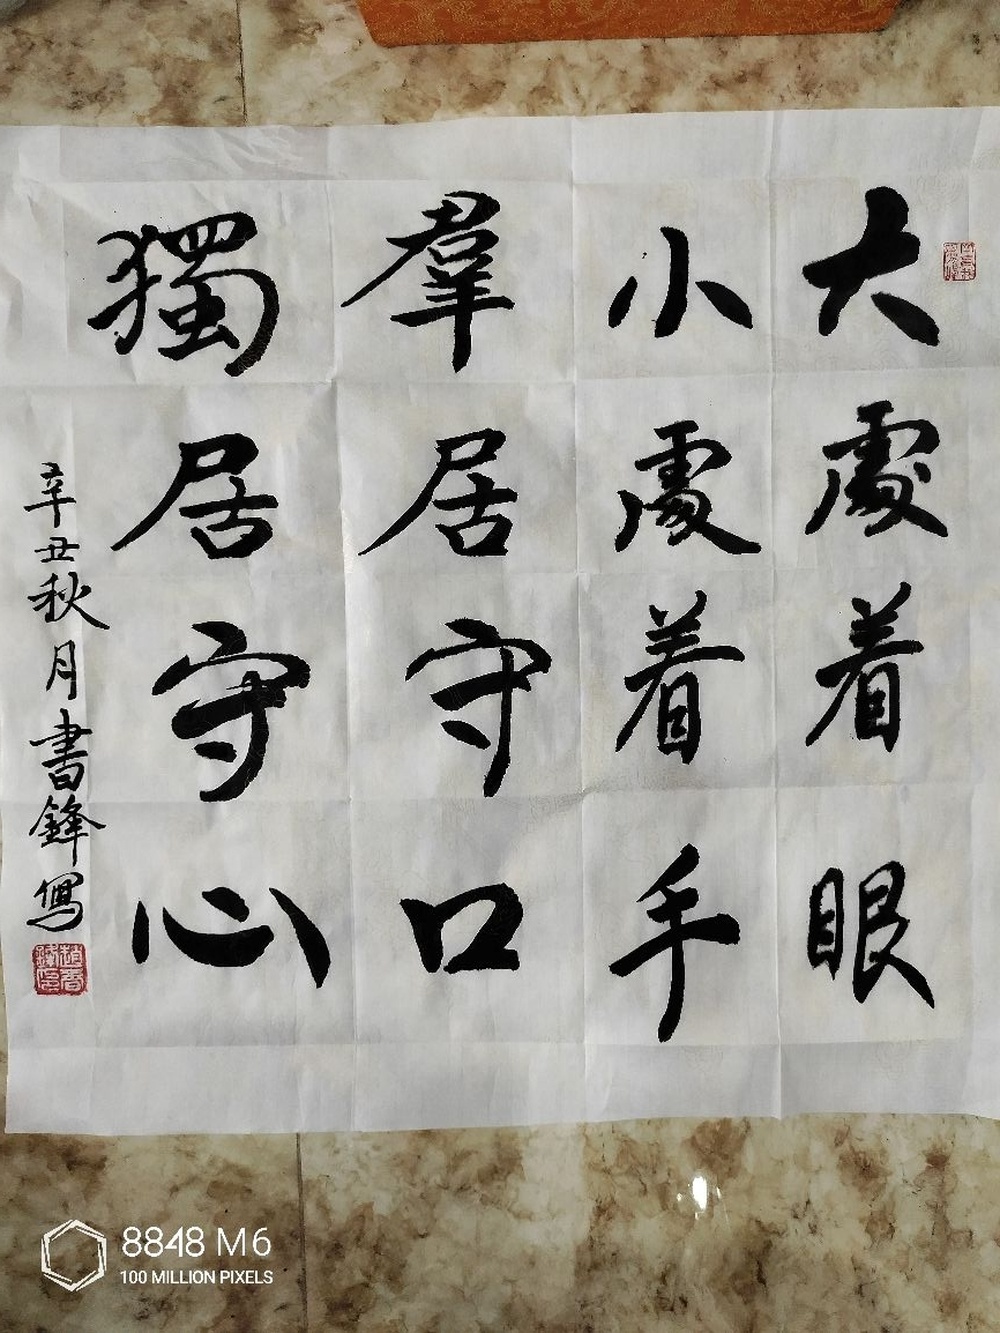 大處着眼
小處着手
羣居守口
獨居守心
辛丑秋月書鋒寫
8848 M6
100 MILLION PIXELS